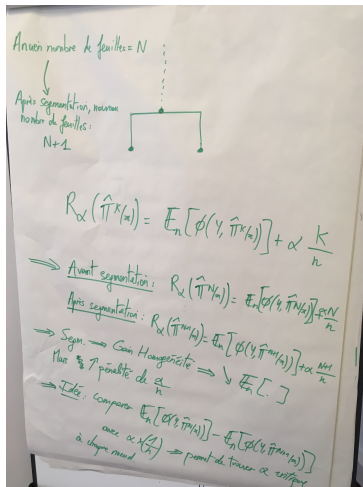 Ancien nombre de feuilles = N
Après segmentation, nouveau
nombre de feuilles :
N+1
R_α(π̂^K(x)) = E_n[ϕ(Y, π̂^K(x))] + α K/n
⇒ Avant segmentation : R_α(π̂^N(x)) = E_n[ϕ(Y, π̂^N(x))] + α N/n
Après segmentation : R_α(π̂^{N+1}(x)) = E_n[ϕ(Y, π̂^{N+1}(x))] + α N+1/n
→ Segm. → Gain Homogénéité ⇒ ↘ E_n[..]
Mais ↑ pénalité de α/n
⇒ Idée : comparer E_n[ϕ(Y, π̂^N(x))] - E_n[ϕ(Y, π̂^{N+1}(x))]
avec α × (1/n)
à chaque nœud ⇒ permet de trouver α critique